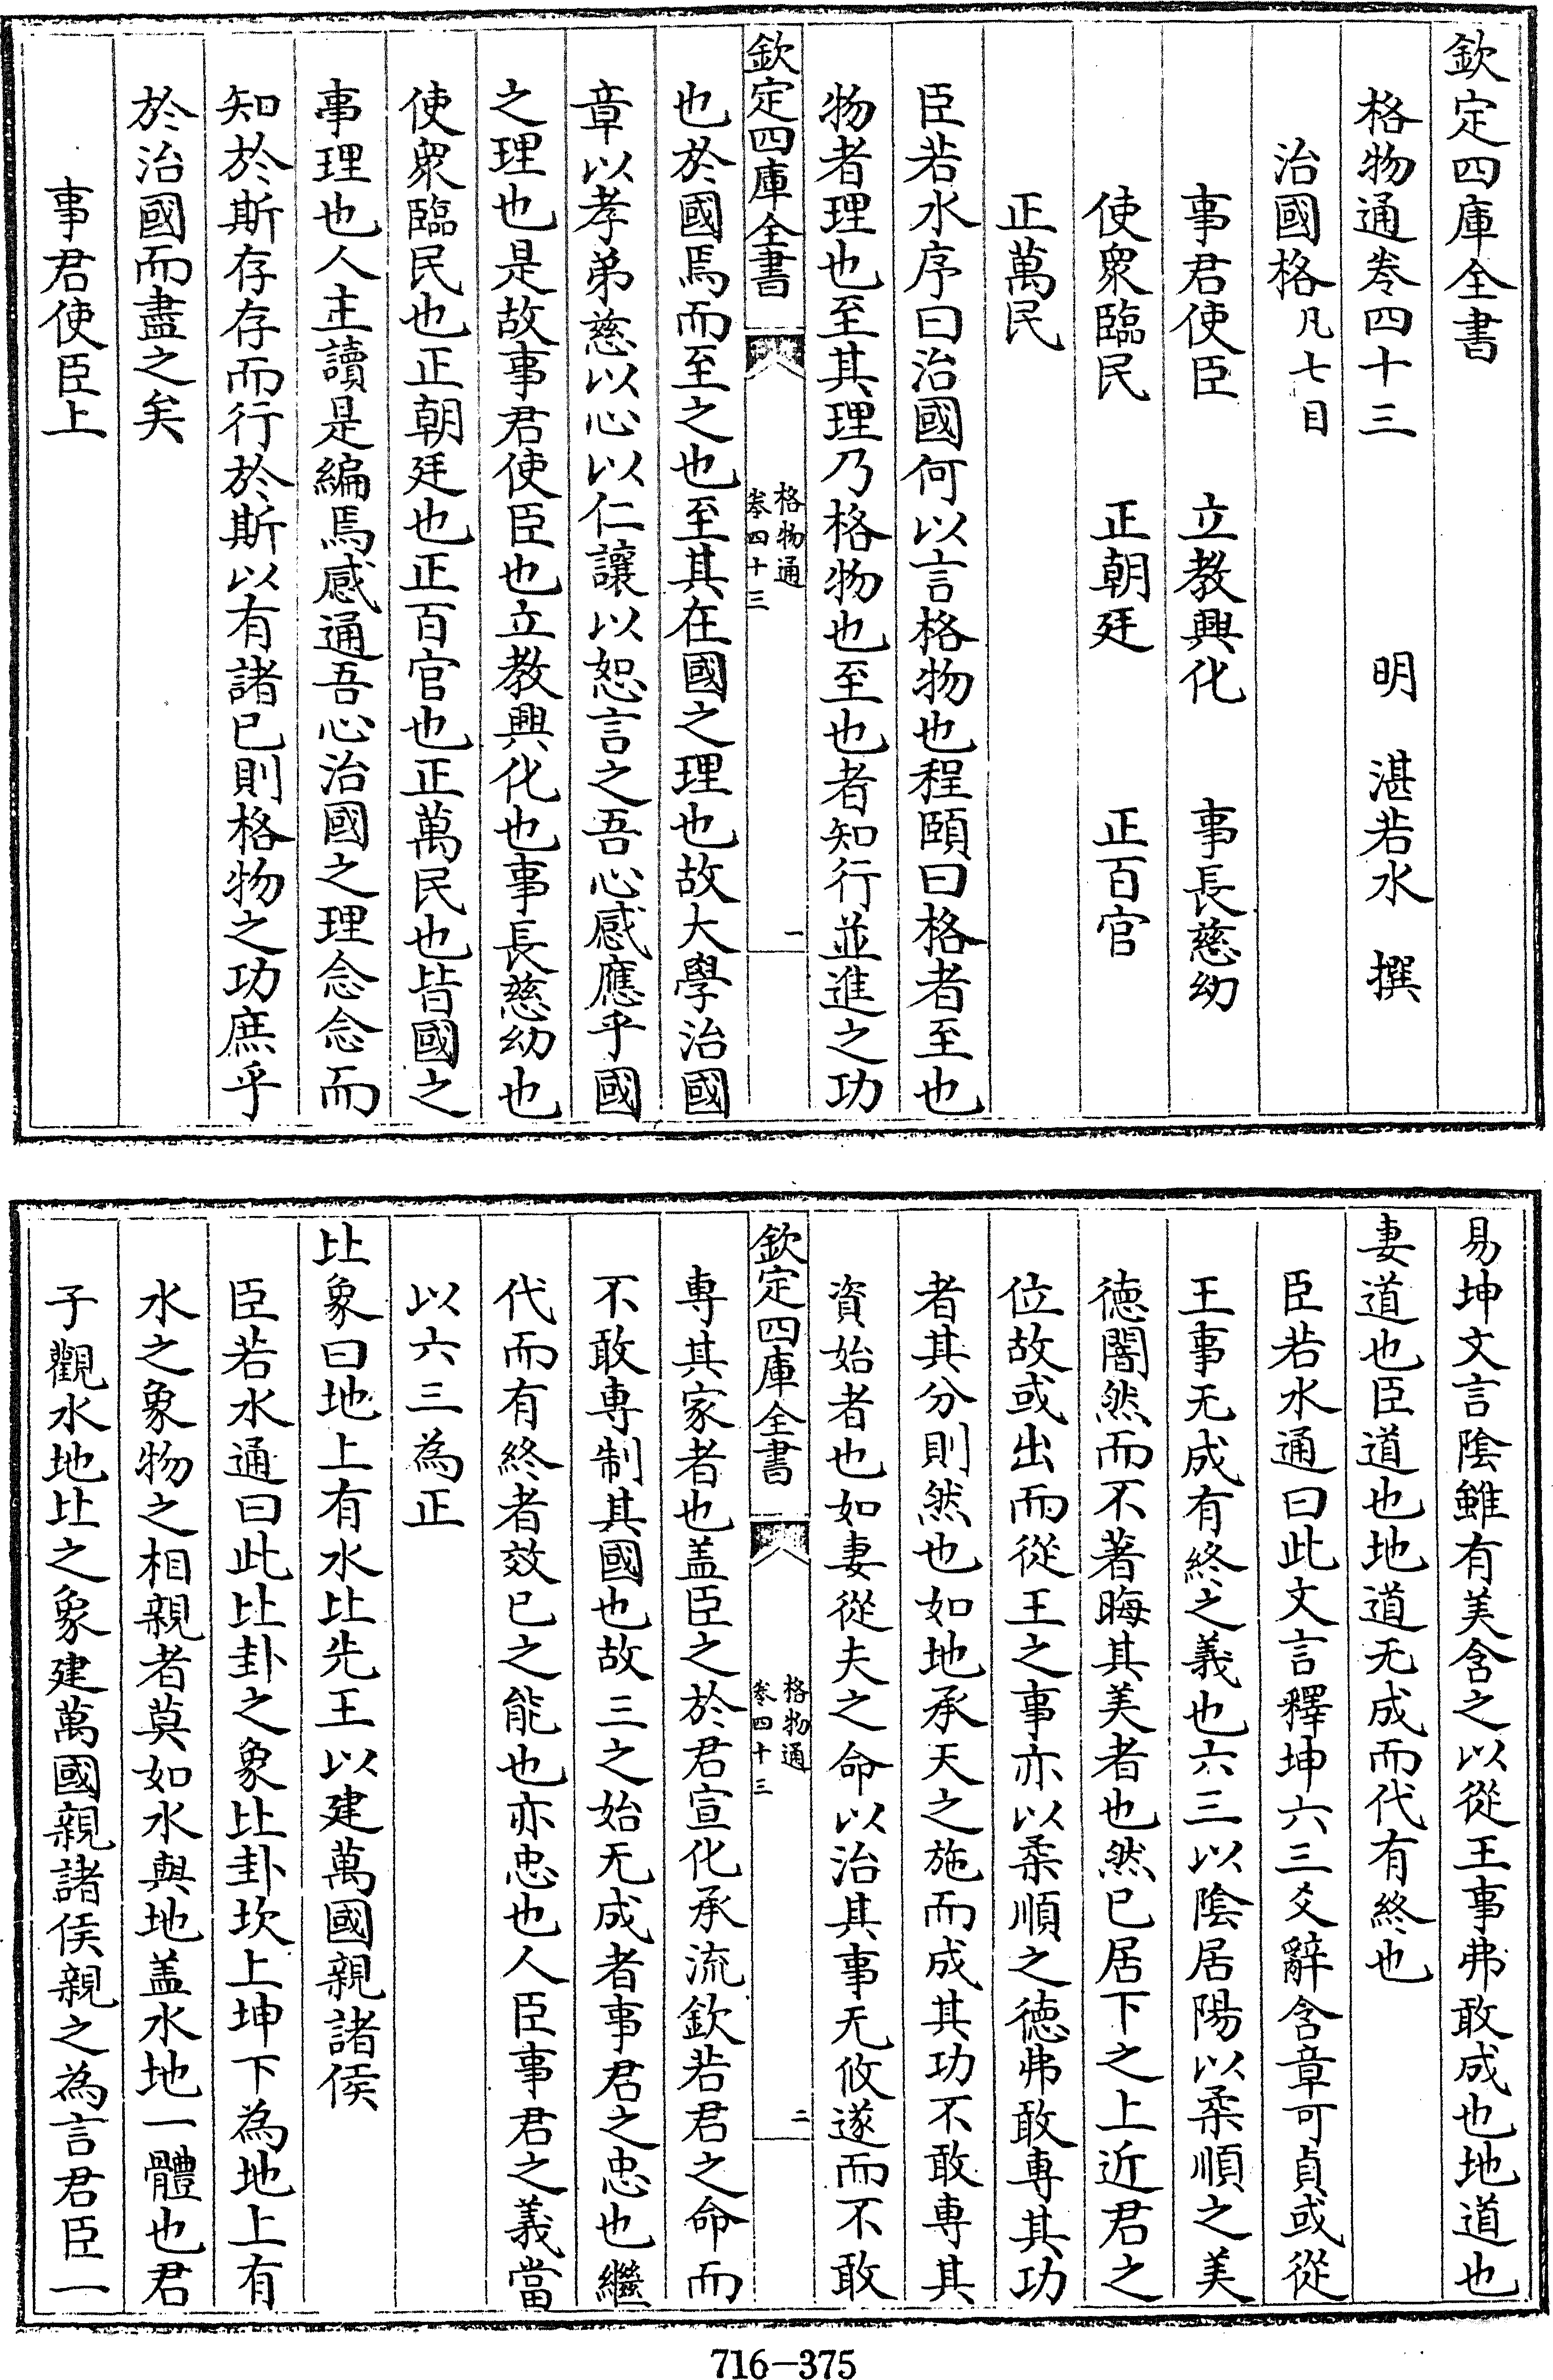 欽定四庫全書
格物通卷四十三　明　湛若水　撰
治國格凡七目
事君使臣　立教興化　事長慈幼
使衆臨民　正朝廷　正百官
正萬民
臣若水序曰治國何以言格物也程頤曰格者至也
物者理也至其理乃格物也至也者知行並進之功
欽定四庫全書
格物通
卷四十三
一
也於國焉而至之也至其在國之理也故大學治國
章以孝弟慈以心以仁讓以恕言之吾心感應乎國
之理也是故事君使臣也立教興化也事長慈幼也
使衆臨民也正朝廷也正百官也正萬民也皆國之
事理也人主讀是編焉感通吾心治國之理念念而
知於斯存存而行於斯以有諸已則格物之功庶乎
於治國而盡之矣
事君使臣上
易坤文言陰雖有美含之以從王事弗敢成也地道也
妻道也臣道也地道无成而代有終也
臣若水通曰此文言釋坤六三爻辭含章可貞或從
王事无成有終之義也六三以陰居陽以柔順之美
德闇然而不著晦其美者也然已居下之上近君之
位故或出而從王之事亦以柔順之德弗敢專其功
者其分則然也如地承天之施而成其功不敢專其
資始者也如妻從夫之命以治其事无攸遂而不敢
欽定四庫全書
格物通
卷四十三
二
專其家者也盖臣之於君宣化承流欽若君之命而
不敢專制其國也故三之始无成者事君之忠也繼
代而有終者效已之能也亦忠也人臣事君之義當
以六三為正
比象曰地上有水比先王以建萬國親諸侯
臣若水通曰此比卦之象比卦坎上坤下為地上有
水之象物之相親者莫如水與地盖水地一體也君
子觀水地比之象建萬國親諸侯親之為言君臣一
716-375